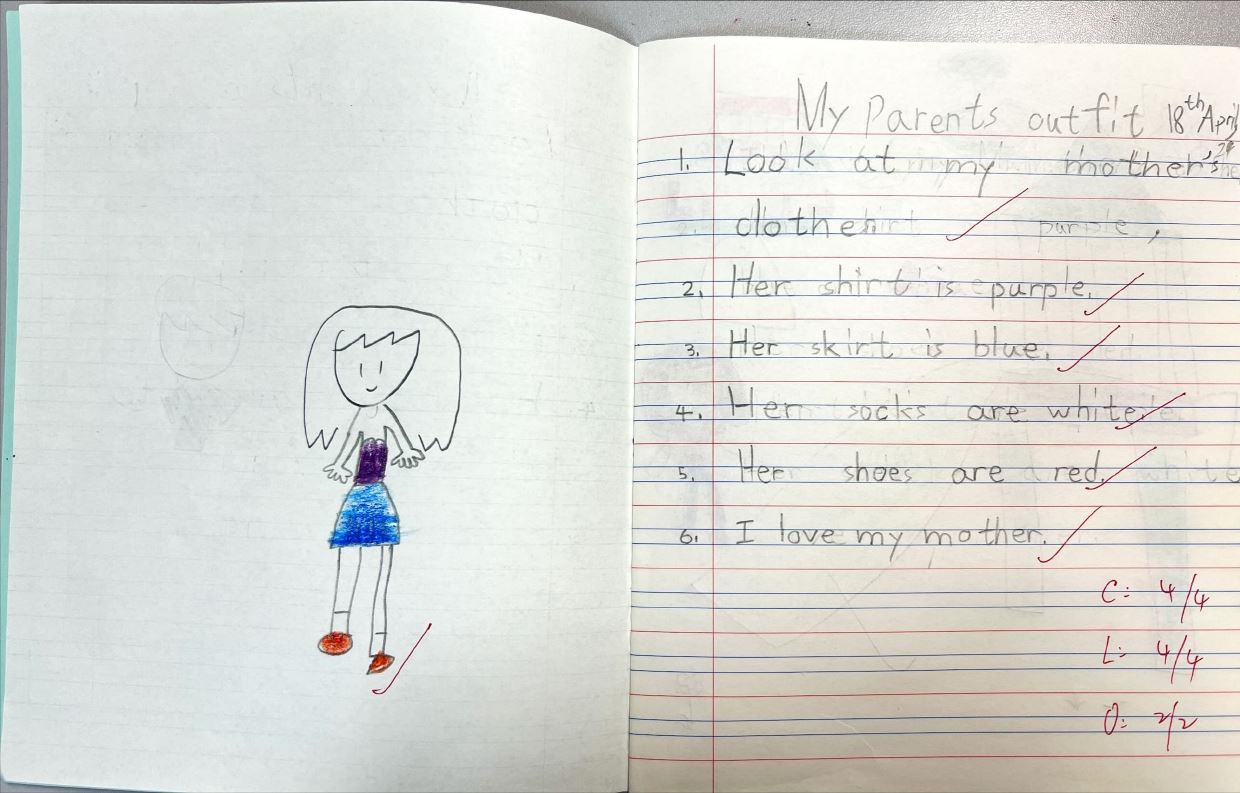 My Parents outfit 18th April
1. Look at my mother's
clothe
2. Her shirt is purple.
3. Her skirt is blue.
4. Her socks are white.
5. Her shoes are red.
6. I love my mother.
C: 4/4
L: 4/4
O: 2/2